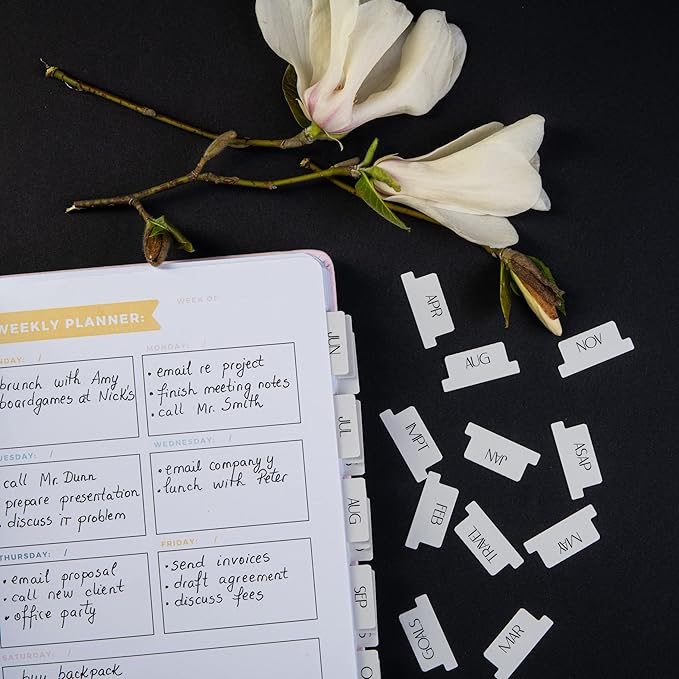 WEEKLY PLANNER:
WEEK OF:
NDAY: /
brunch with Amy
boardgames at Nick's
MONDAY: /
• email re project
• finish meeting notes
• call Mr. Smith
UESDAY: /
call Mr. Dunn
prepare presentation
• discuss IT problem
WEDNESDAY: /
• email company y
• lunch with Peter
THURSDAY: /
• email proposal
• call new client
• office party
FRIDAY: /
• send invoices
• draft agreement
• discuss fees
SATURDAY: /
buy backpack
JUN
JUL
AUG
SEP
APR
AUG
NOV
IMPT
JAN
ASAP
FEB
TRAVEL
MAY
GOALS
MAR